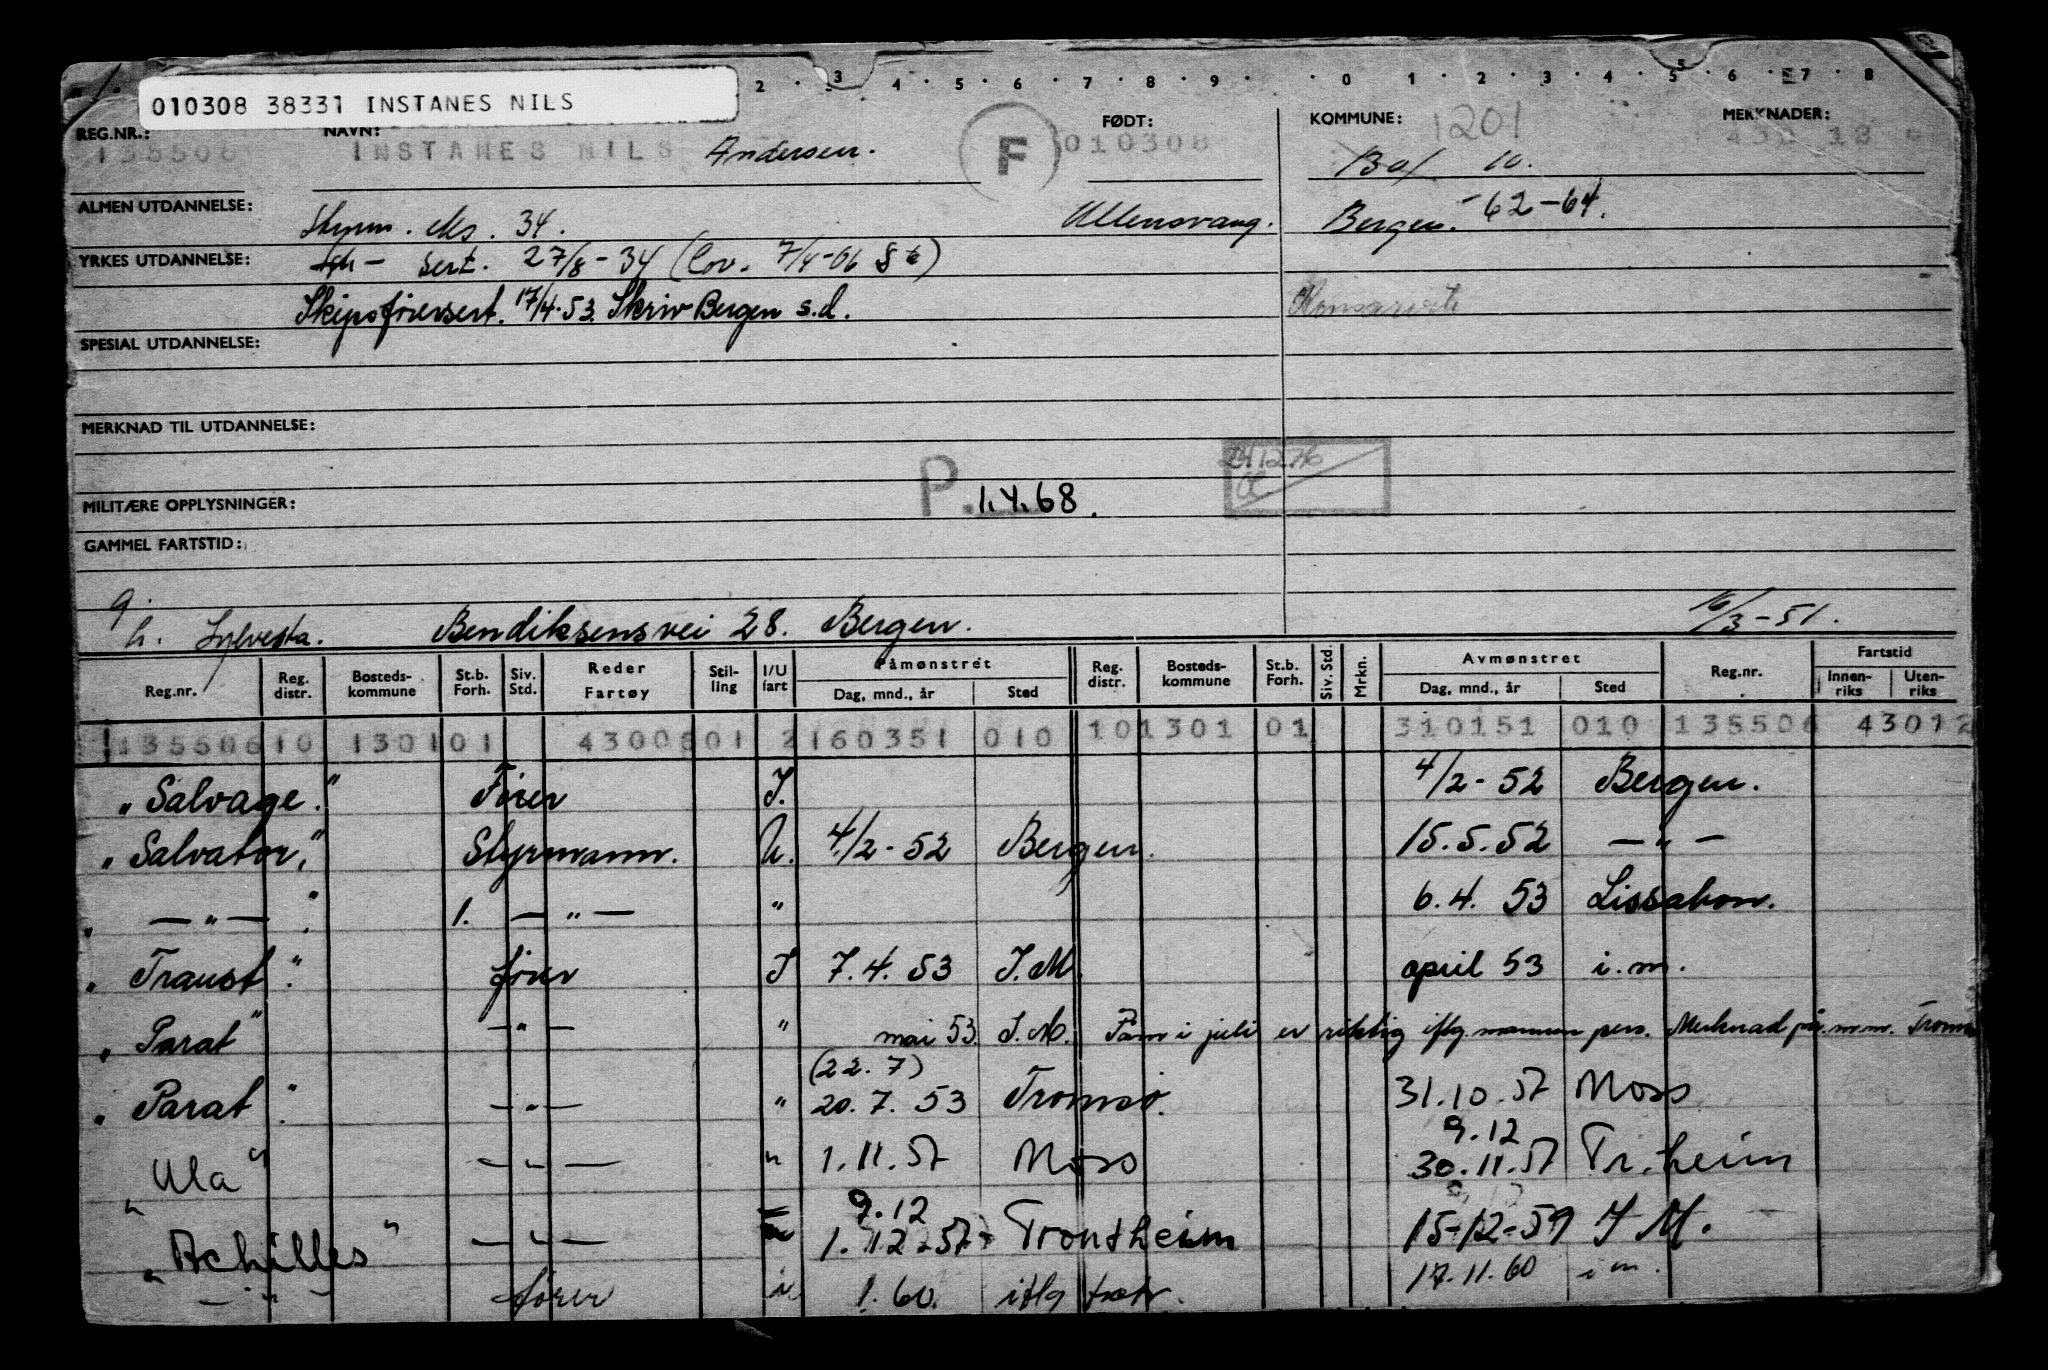 1. 2 · 3 · 4 · 5 · 6 · 7 · 8 · 9 · · 0 · 1 · 2 · 3 · 4 · 5 · 6 · 7 · 8
010308 38331 INSTANES NILS
REG.NR.: NAVN: FØDT: KOMMUNE: 1201 MERKNADER:
135506 INSTANES NILS Andersen. F 010308 1301 10.
ALMEN UTDANNELSE: Styrm. eks. 34. Ullensvang. Bergen. -62-64.
YRKES UTDANNELSE: sert. 27/8-34 (Cov. 7/4-66 St)
Skipsførersert. 17/4-53. Skriv Bergen s.d.
SPESIAL UTDANNELSE:
MERKNAD TIL UTDANNELSE:
P. 1.4.68.
MILITÆRE OPPLYSNINGER:
GAMMEL FARTSTID:
g. h. Sylvesta. Bendiksensvei 28. Bergen. 16/3-51.
Reg.nr. Reg. distr. Bosteds-kommune St.b. Forh. Siv. Std. Reder Fartøy Stil-ling I/U fart Påmønstret Dag, mnd., år Sted Reg. distr. Bosteds-kommune St.b. Forh. Siv. Std. Mrkn. Avmønstret Dag, mnd., år Sted Reg.nr. Fartstid Innen-riks Uten-riks
135506 10 1301 01 4300601 2 160351 010 10 1301 01 310151 010 135506 43012
"Salvage." Fører I. 4/2-52 Bergen.
"Salvator," Styrmann. U. 4/2-52 Bergen. 15.5.52 — " —
" — " — " 1. — " — " 6.4.53 Lissabon.
"Traust" fører I 7.4.53 I.M. april 53 i.m.
"Parat" — " — " mai 53. I.M. Påm i juli er riktig iflg. mannen pers. Merknad på m.m. Tromsø
(22.7)
"Parat" — " — " 20.7.53 Tromsø. 31.10.57 Moss
9.12
"Ula" — " — " 1.11.57 Moss 30.11.57 Tr.heim
9.12
"Achilles" — " — 1.12.57 Trondheim 15-12-59 I M.
— " — fører i 1.60. iflg 17.11.60 i m.